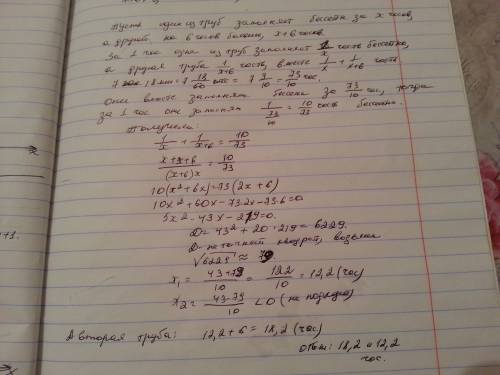 Пусть один из труб заполняет бассейн за x часов,
а другой, на 6 часов больше, x+6 часов
За 1 час одна из труб заполняет 1/x часть бассейна,
а другая труба 1/(x+6) часть, вместе 1/x + 1/(x+6) часть
7 18 мин = 7 18/60 = 7 3/10 = 73/10 час.
Они вместе заполнят бассейн за 73/10 час, тогда
за 1 час они заполнят 1/(73/10) = 10/73 часть бассейна.
Получили:
1/x + 1/(x+6) = 10/73
(x+x+6)/((x+6)x) = 10/73
10(x²+6x)=73(2x+6)
10x²+60x-73·2x-73·6=0
5x²-43x-219=0.
D=43²+20·219=6229.
D- не точный квадрат, возьмем
√6229 ≈ 79
x₁ = (43+79)/10 = 122/10 = 12,2 (час)
x₂ = (43-79)/10 <0 (не подходит)
А вторая труба: 12,2+6 = 18,2 (час)
Ответ: 18,2 и 12,2
час.